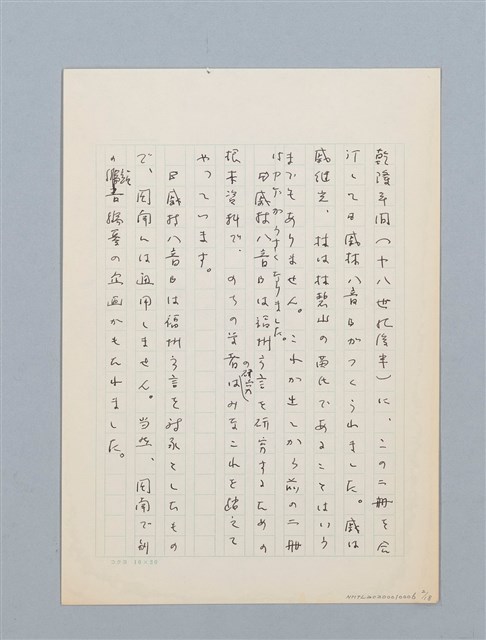 乾隆年間(十八世紀後半)に、この二冊を合
订して『戚林八音』がつくられました。戚は
戚继光、林は林碧山の苗氏であることはいう
までもありません。これが出てから前の二冊
はかたがうすくなりました。
『戚林八音』は福州方言を研究するための
根本資料で、のちの学者はみなこれを踏えて
の研究の
やっています。
『戚林八音』は福州方言を対象としたもの
で、閩南には通用しません。当然、閩南で別
の韻書編纂の企画がもたれました。